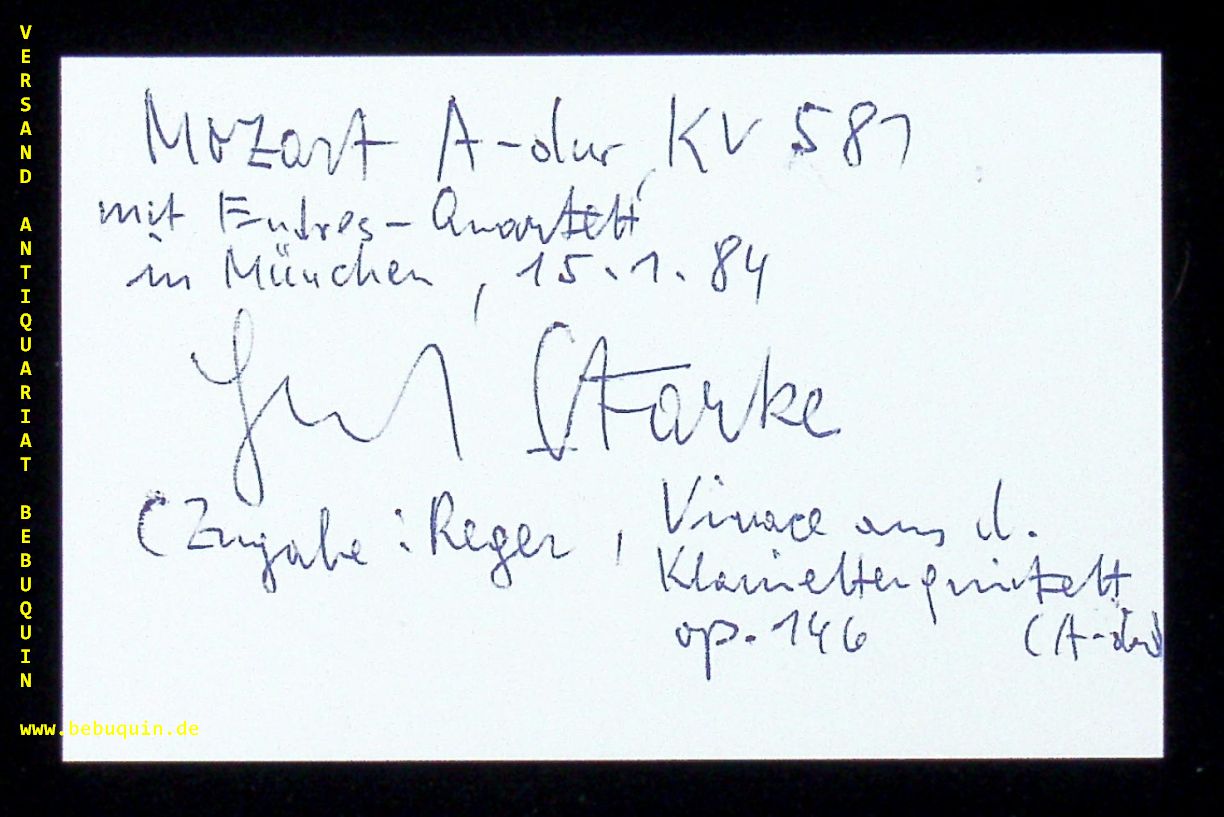 Mozart A-dur, KV 581
mit Endres-Quartett
in München, 15.1.84
Starke
(Zugabe: Reger, Vivace aus d.
Klarinettenquintett
op. 146 (A-dur)
VERSAND ANTIQUARIAT BEBUQUIN
www.bebuquin.de